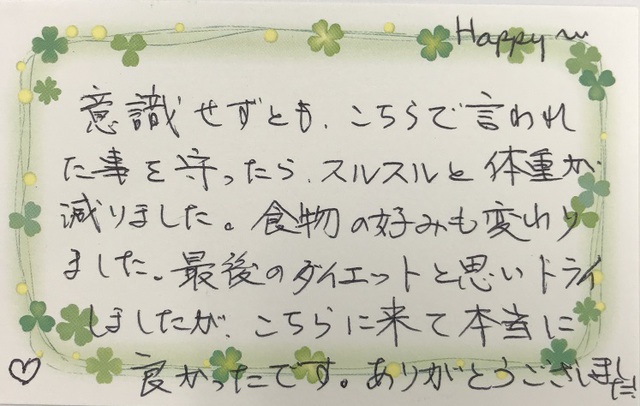 Happy~
意識せずとも、こちらで言われ
た事を守ったら、スルスルと体重が
減りました。食物の好みも変わり
ました。最後のダイエットと思いトライ
しましたが、こちらに来て本当に
良かったです。ありがとうございました
♡